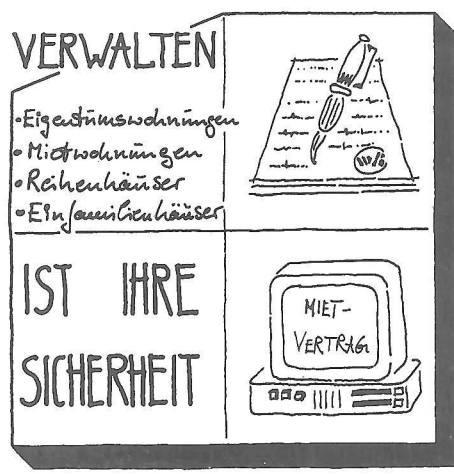 VERWALTEN
• Eigentumswohnungen
• Mietwohnungen
• Reihenhäuser
• Einfamilienhäuser
IST IHRE
SICHERHEIT
MIET-
VERTRAG